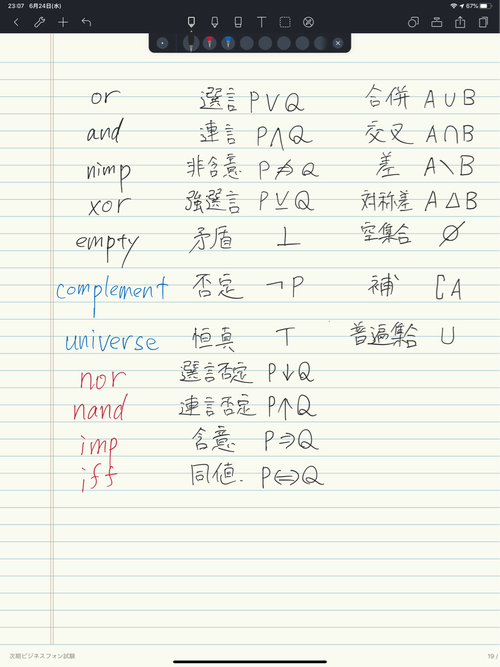 23:07 6月24日(水)
67%
or 選言 P∨Q 合併 A∪B
and 連言 P∧Q 交叉 A∩B
nimp 非含意 P⇏Q 差 A∖B
xor 強選言 P⊻Q 対称差 A△B
empty 矛盾 ⊥ 空集合 ∅
complement 否定 ¬P 補 ∁A
universe 恒真 ⊤ 普遍集合 U
nor 選言否定 P↓Q
nand 連言否定 P↑Q
imp 含意 P⇒Q
iff 同値. P⇔Q
次期ビジネスフォン試験
19 /